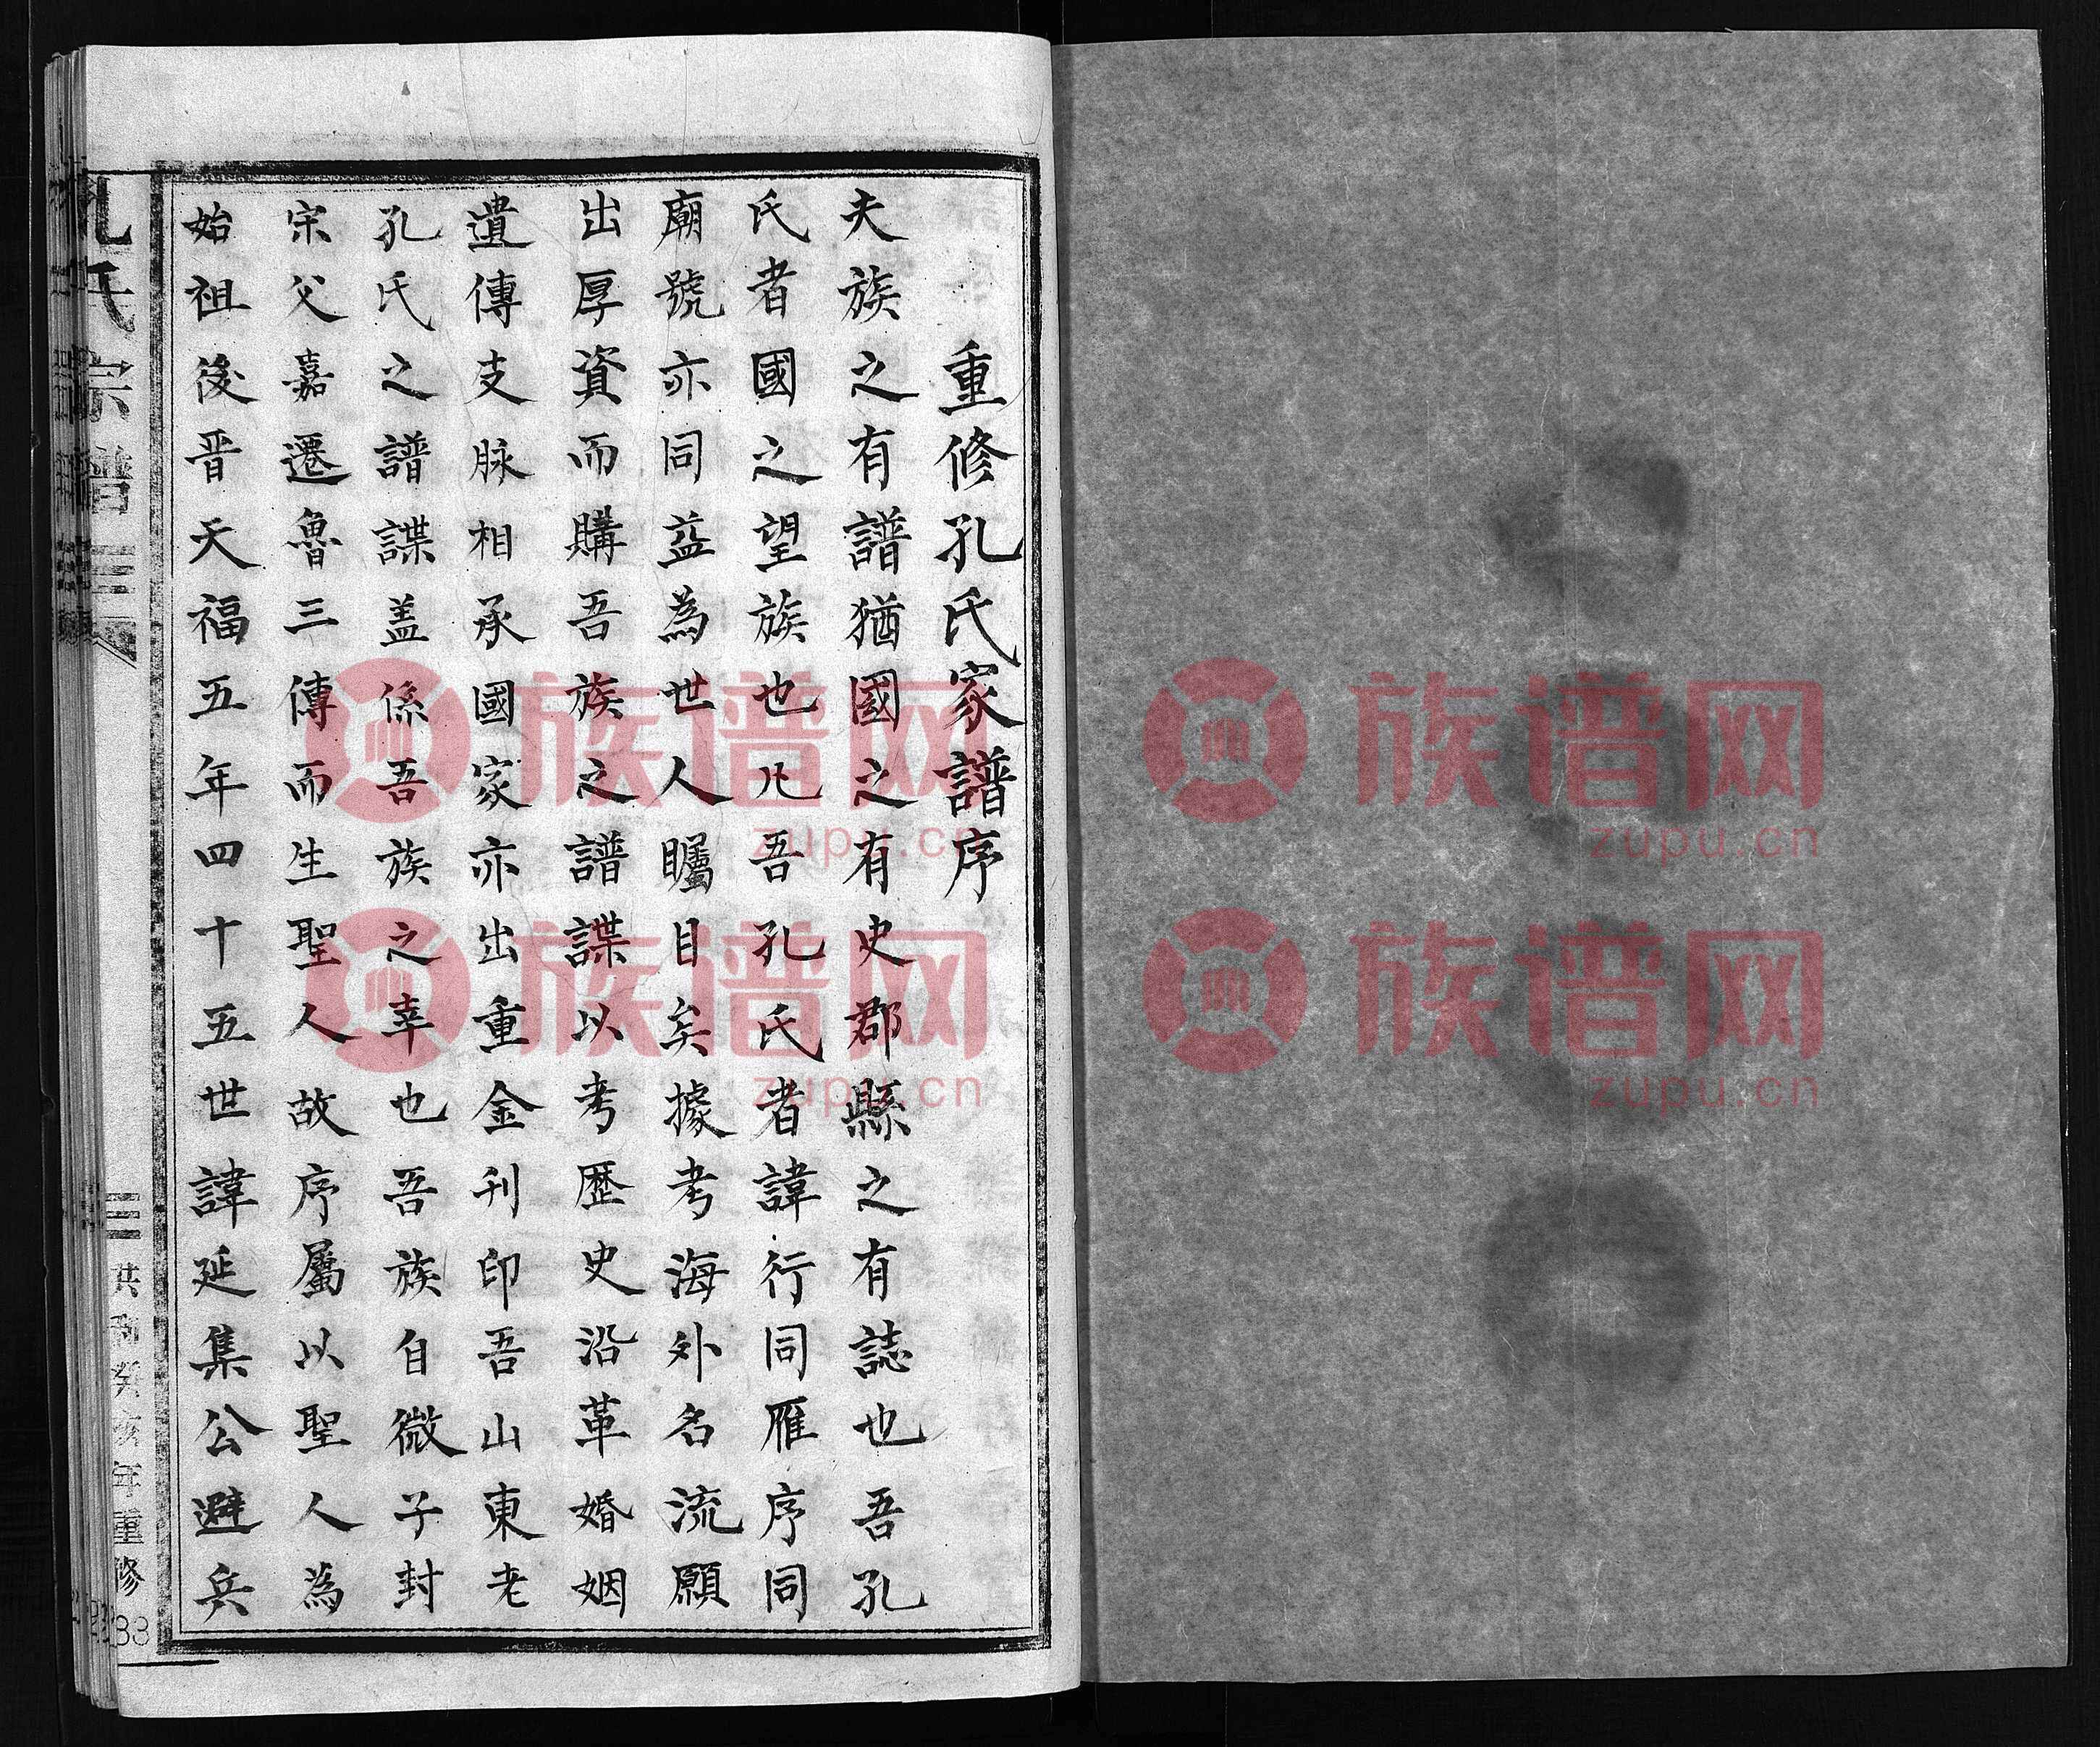 重修孔氏家譜序
夫族之有譜猶國之有史郡縣之有誌也吾孔
氏者國之望族也凡吾孔氏者諱行同雁序同
廟號亦同益為世人矚目矣據考海外名流願
出厚資而購吾族之譜諜以考歷史沿革婚姻
遺傳支脉相承國家亦出重金刊印吾山東老
孔氏之譜諜盖係吾族之幸也吾族自微子封
宗父嘉遷魯三傳而生聖人故序屬以聖人為
始祖後晋天福五年四十五世諱延集公避兵
孔氏宗譜
年重修
族谱网
zupu.cn
族谱网
zupu.cn
族谱网
zupu.cn
族谱网
zupu.cn